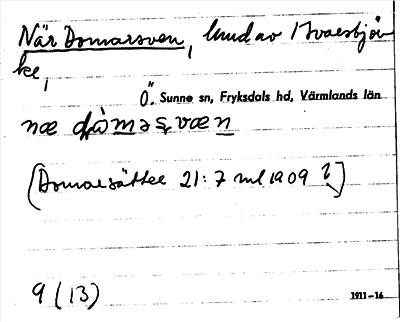 När Domarsven, lmd av Ivaesbjör
ke,
Ö. Sunne sn, Fryksdals hd, Värmlands län
næ dὼmasvæn
[Domaesättee 21:7 ml 1909 ?]
9 (13)
1911-16